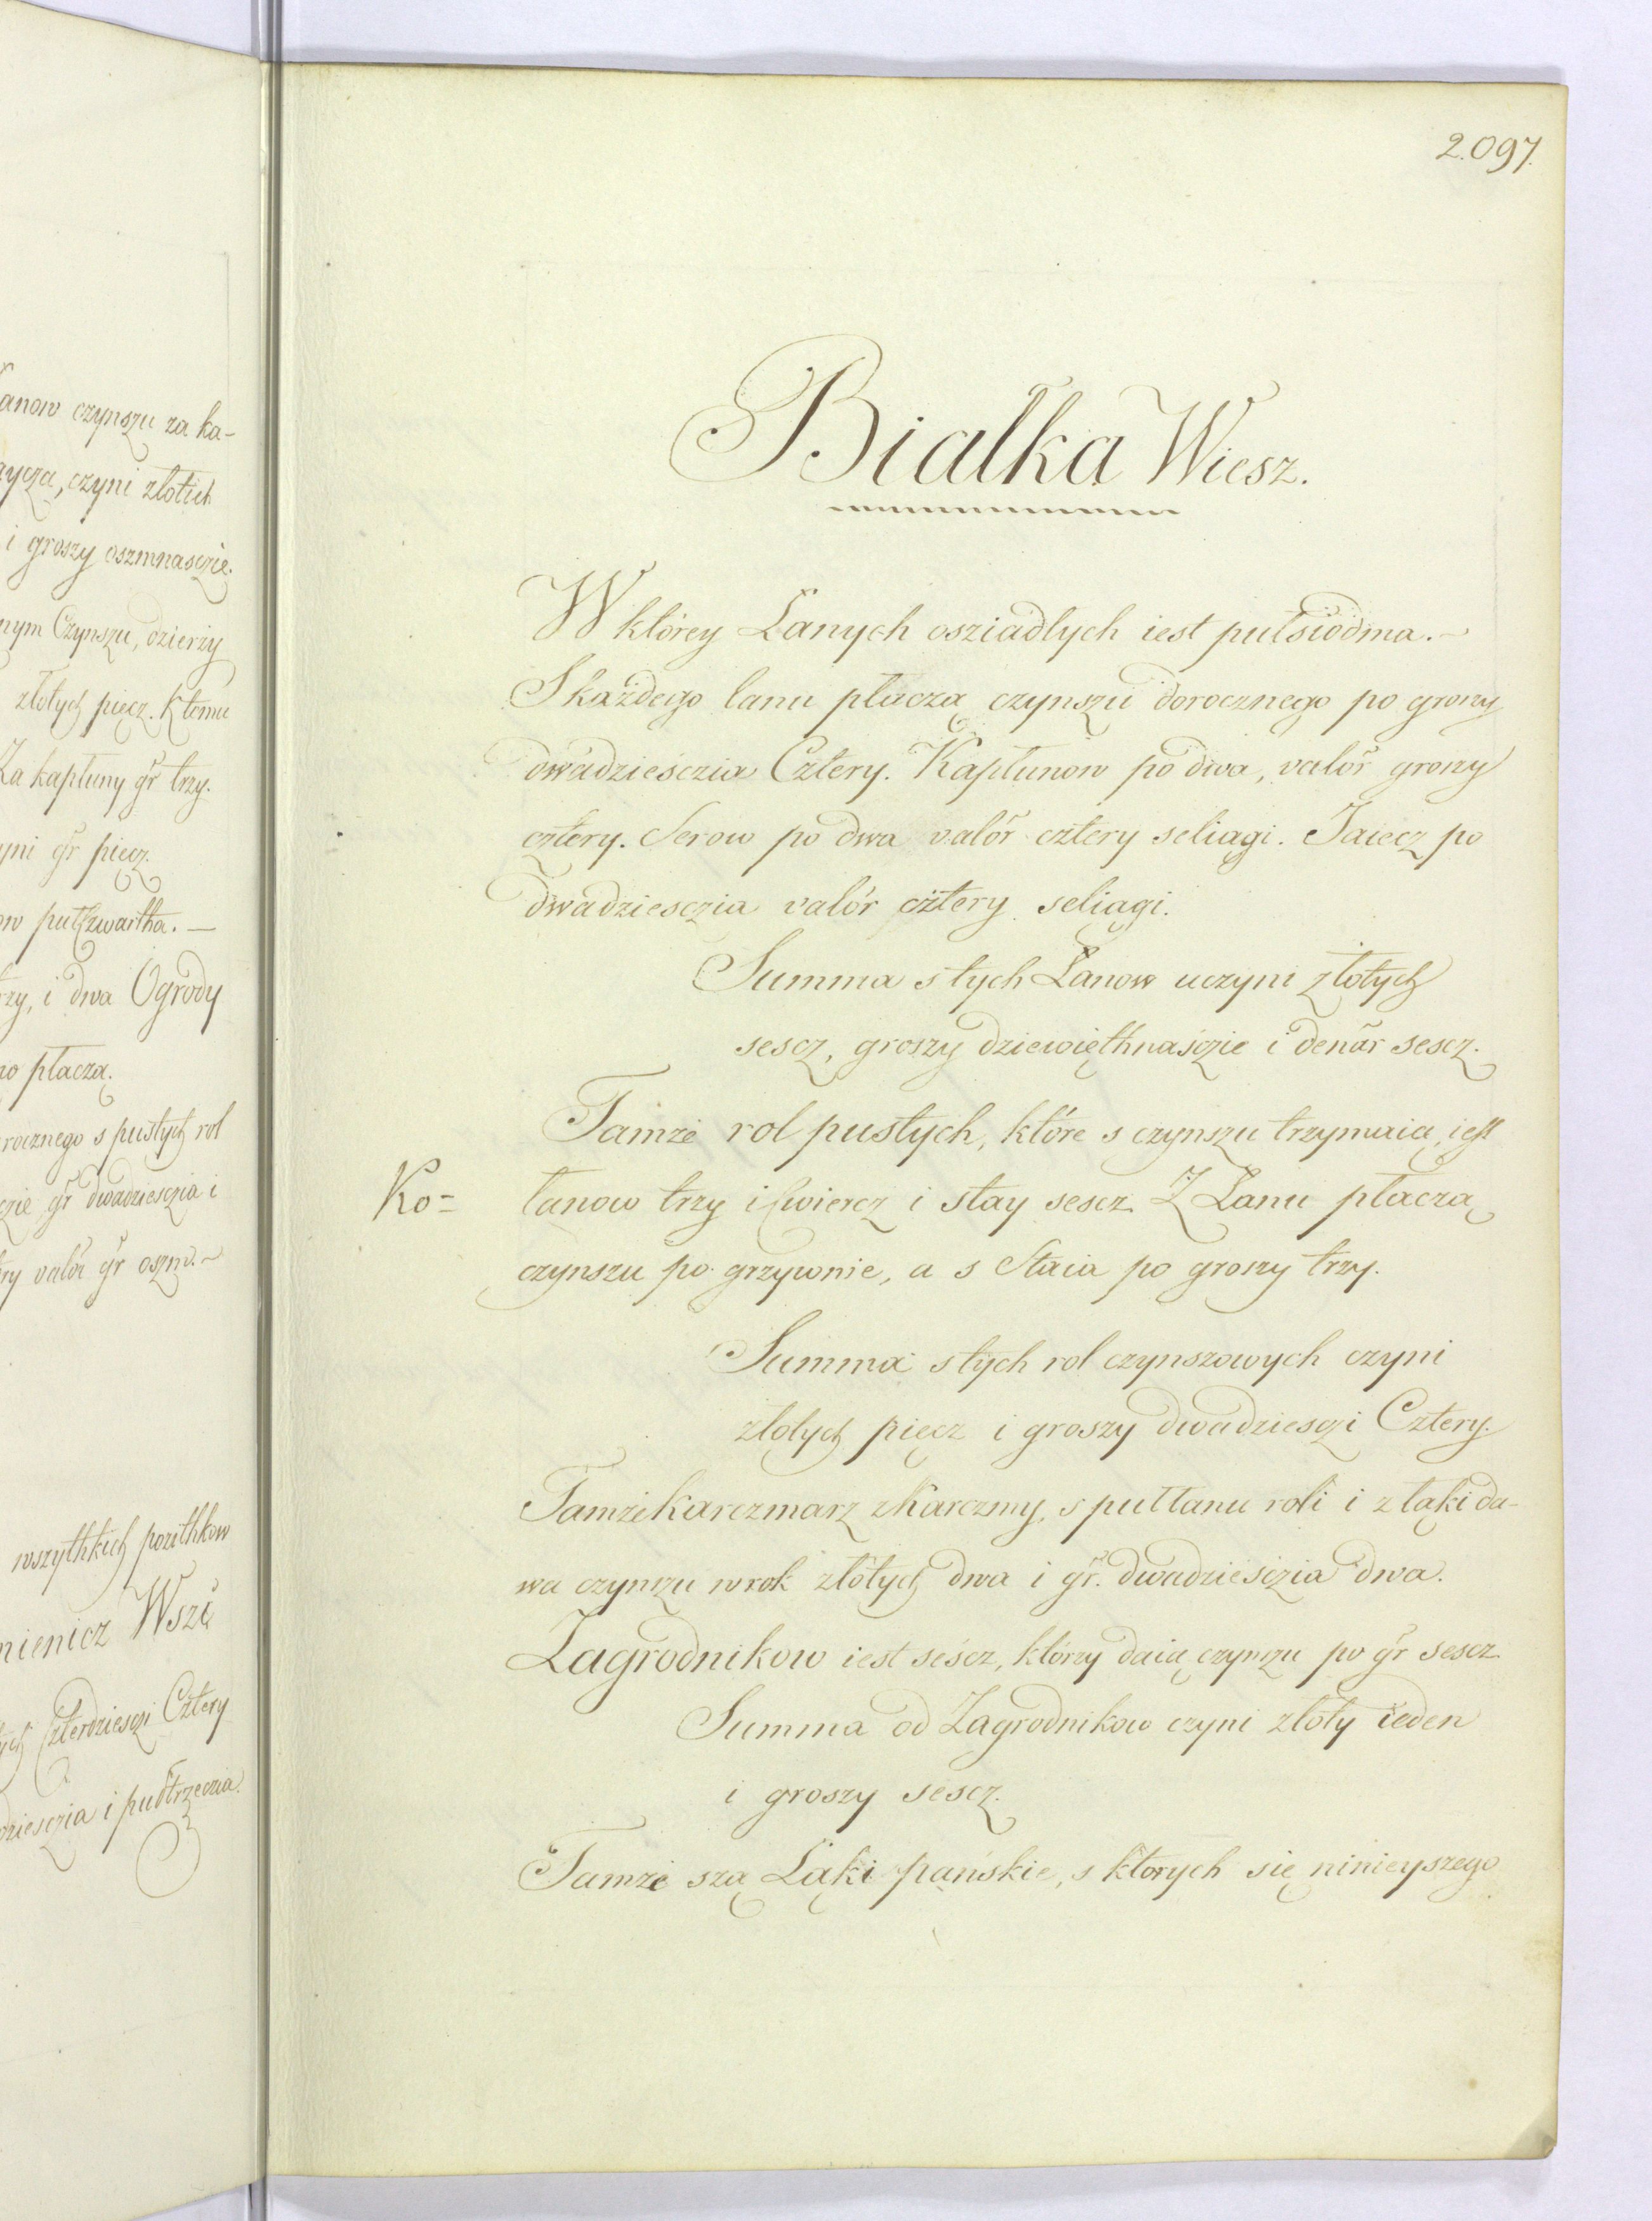 anow czynszu za ka-
aycza, czyni złotich
i groszy oszmnasczie.
nym Czynszu, dzierży
złotych pięcz. Ktemu
Za kapłuny gr̃ trzy.
yni gr̃ pięcz.
ow pułczwartha. —
rzy, i dwa Ogrody
no płaczą.
rocznego s pustych rol
czie gr̃ dwadziesczia i
ry valór gr̃ oszm. ~
wszythkich pozithkow
mienicz Wszi
ych Czterdziesczi Cztery
dziesczia i pułtrzeczia.
2.097.
Bialka Wiesz.
W którey Łanych osziadlych iest pułsiodma. ~
S każdego lanu płaczą czynszu dorocznego po groszy
dwadziesczia Cztery. Kapłunow po dwa, valór groszy
cztery. Serow po dwa valór cztery seliagi. Jaiecz po
dwadziesczia valór cztery seliągi.
Summa s tych Łanow uczyni złotych
sescz, groszy dziewięthnasczie i denãr sescz.
Tamże rol pustych, które s czynszu trzymaią, iest
Ko= łanow trzy i Cwiercz i stay sescz. Z Łanu płaczą
czynszu po grzywnie, a s Staia po groszy trzy.
Summa s tych rol czynszowych czyni
złotych pięcz i groszy dwadziesczi Cztery.
Tamże karczmarz z Karczmy, s pułłanu roli i z łąki da-
wa czynszu w rok złotych dwa i gr̃. dwadziesczia dwa.
Zagrodnikow iest sescz, którzy daią czynszu po gr̃ sescz.
Summa od Zagrodnikow czyni złoty ieden
i groszy sescz.
Tamże szą Łąki pańskie, s ktorych się ninieyszego